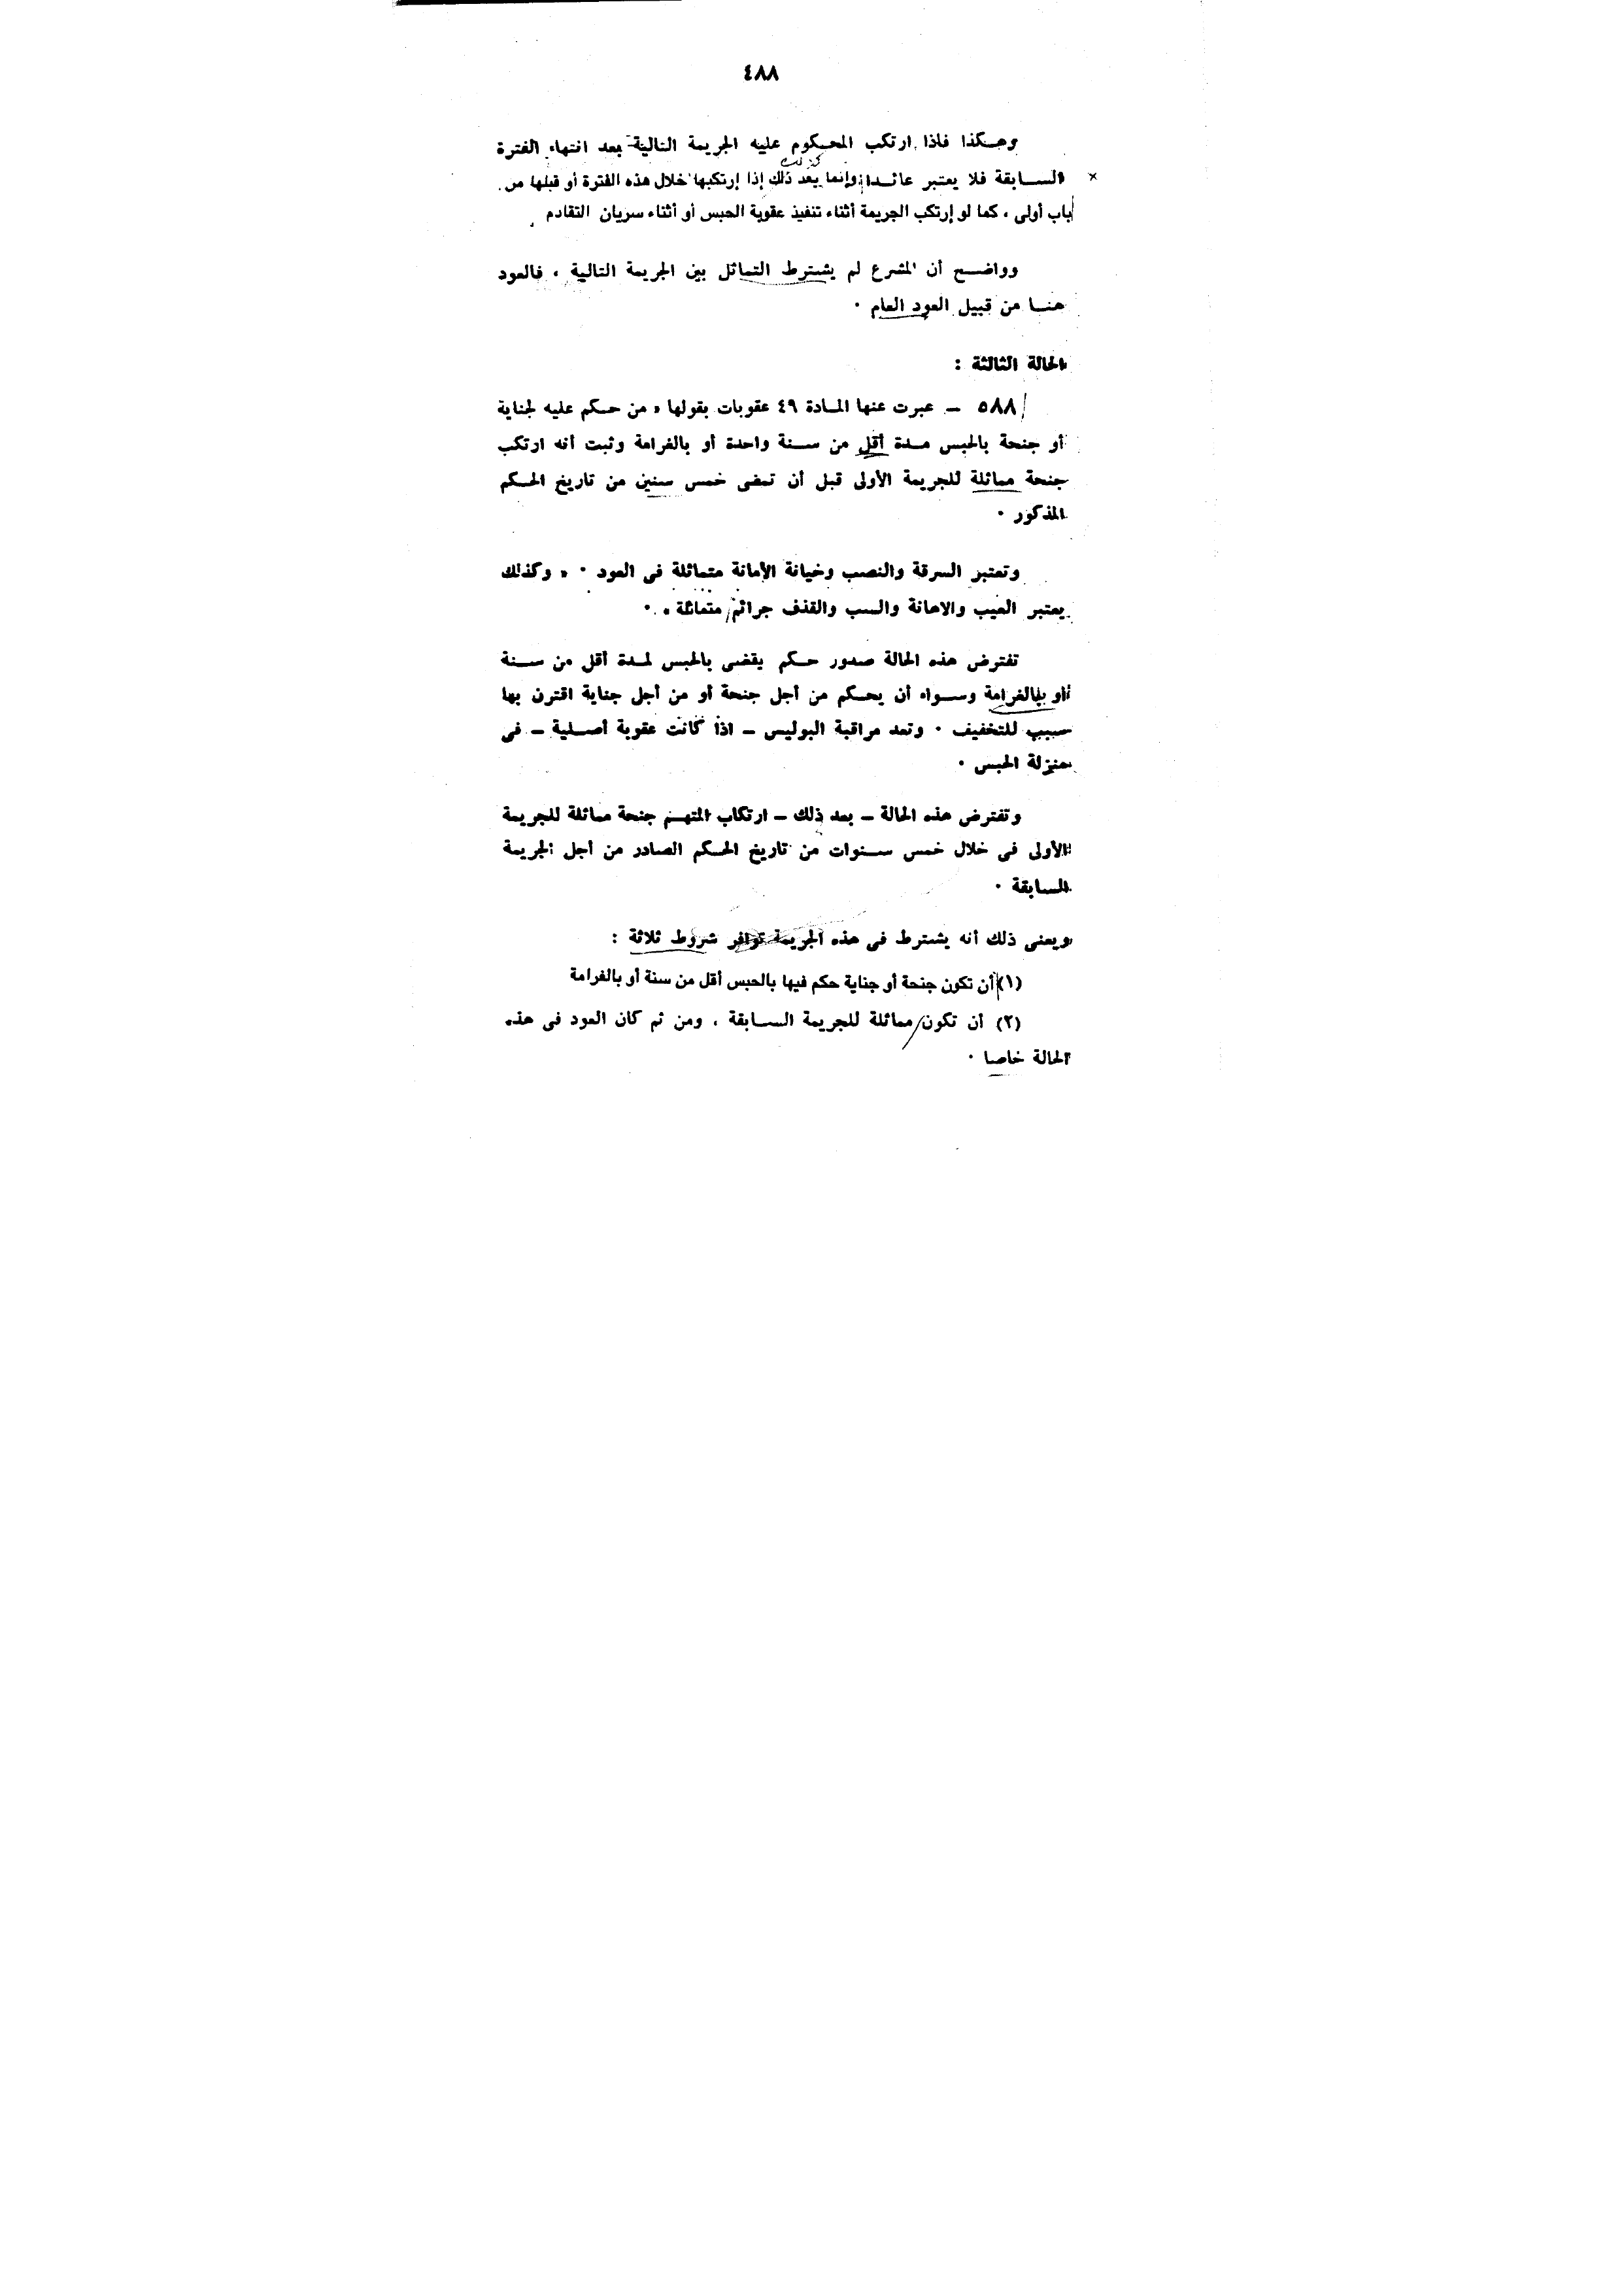 ٤٨٨
وهكذا فاذا ارتكب المحكوم عليه الجريمة التالية بعد انتهاء الفترة
السابقة فلا يعتبر عائدا وإنما يعد ذلك إذا إرتكبها خلال هذه الفترة أو قبلها من
باب أولى ، كما لو إرتكب الجريمة أثناء تنفيذ عقوبة الحبس أو أثناء سريان التقادم
وواضح أن المشرع لم يشترط التماثل بين الجريمة التالية ، فالعود
هنا من قبيل العود العام ٠
الحالة الثالثة :
٥٨٨ ـ عبرت عنها المادة ٤٩ عقوبات بقولها « من حكم عليه لجناية
أو جنحة بالحبس مدة أقل من سنة واحدة أو بالغرامة وثبت أنه ارتكب
جنحة مماثلة للجريمة الأولى قبل أن تمضى خمس سنين من تاريخ الحكم
المذكور ٠
وتعتبر السرقة والنصب وخيانة الأمانة متماثلة فى العود ٠ » وكذلك
يعتبر العيب والاهانة والسب والقذف جرائم متماثلة » ٠
تفترض هذه الحالة صدور حكم يقضى بالحبس لمدة أقل من سنة
أو بالغرامة وسواء أن يحكم من أجل جنحة أو من أجل جناية اقترن بها
سبب للتخفيف ٠ وتعد مراقبة البوليس ـ اذا كانت عقوبة أصلية ـ فى
منزلة الحبس ٠
وتفترض هذه الحالة ـ بعد ذلك ـ ارتكاب المتهم جنحة مماثلة للجريمة
الأولى فى خلال خمس سنوات من تاريخ الحكم الصادر من أجل الجريمة
السابقة ٠
ويعنى ذلك أنه يشترط فى هذه الجريمة توافر شروط ثلاثة :
(١) أن تكون جنحة أو جناية حكم فيها بالحبس أقل من سنة أو بالغرامة
(٢) أن تكون مماثلة للجريمة السابقة ، ومن ثم كان العود فى هذه
الحالة خاصا ٠